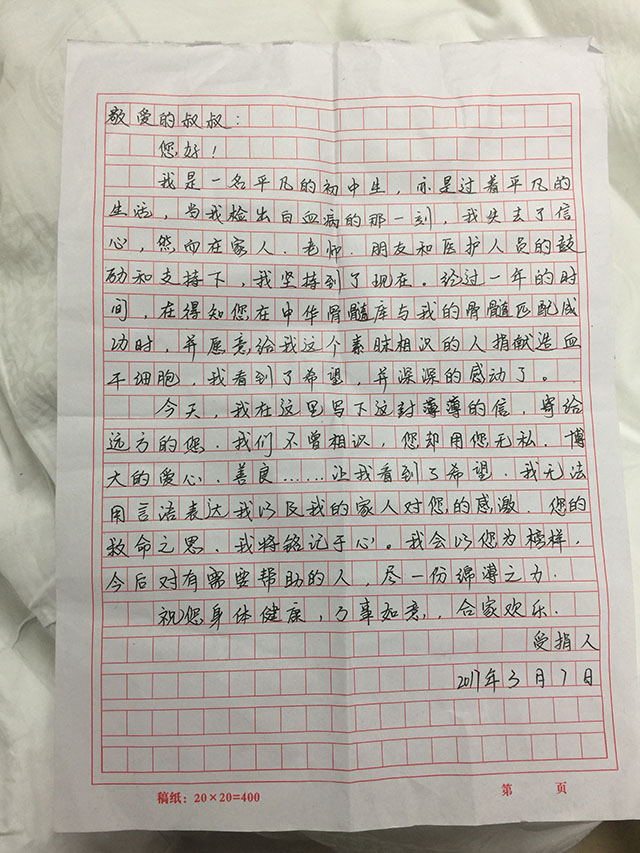 敬爱的叔叔：
您好！
我是一名平凡的初中生，亦是过着平凡的
生活，当我检出白血病的那一刻，我失去了信
心，然而在家人．老师．朋友和医护人员的鼓
励和支持下，我坚持到了现在。经过一年的时
间，在得知您在中华骨髓库与我的骨髓匹配成
功时，并愿意给我这个素昧相识的人捐献造血
干细胞，我看到了希望，并深深的感动了。
今天，我在这里写下这封薄薄的信，寄给
远方的您．我们不曾相识，您却用您无私．博
大的爱心．善良……让我看到了希望．我无法
用言语表达我以及我的家人对您的感激．您的
救命之恩．我将铭记于心。我会以您为榜样，
今后对有需要帮助的人，尽一份绵薄之力．
祝您身体健康，万事如意，，合家欢乐．
受捐人
2017年3月7日
稿纸：20×20=400 第 页